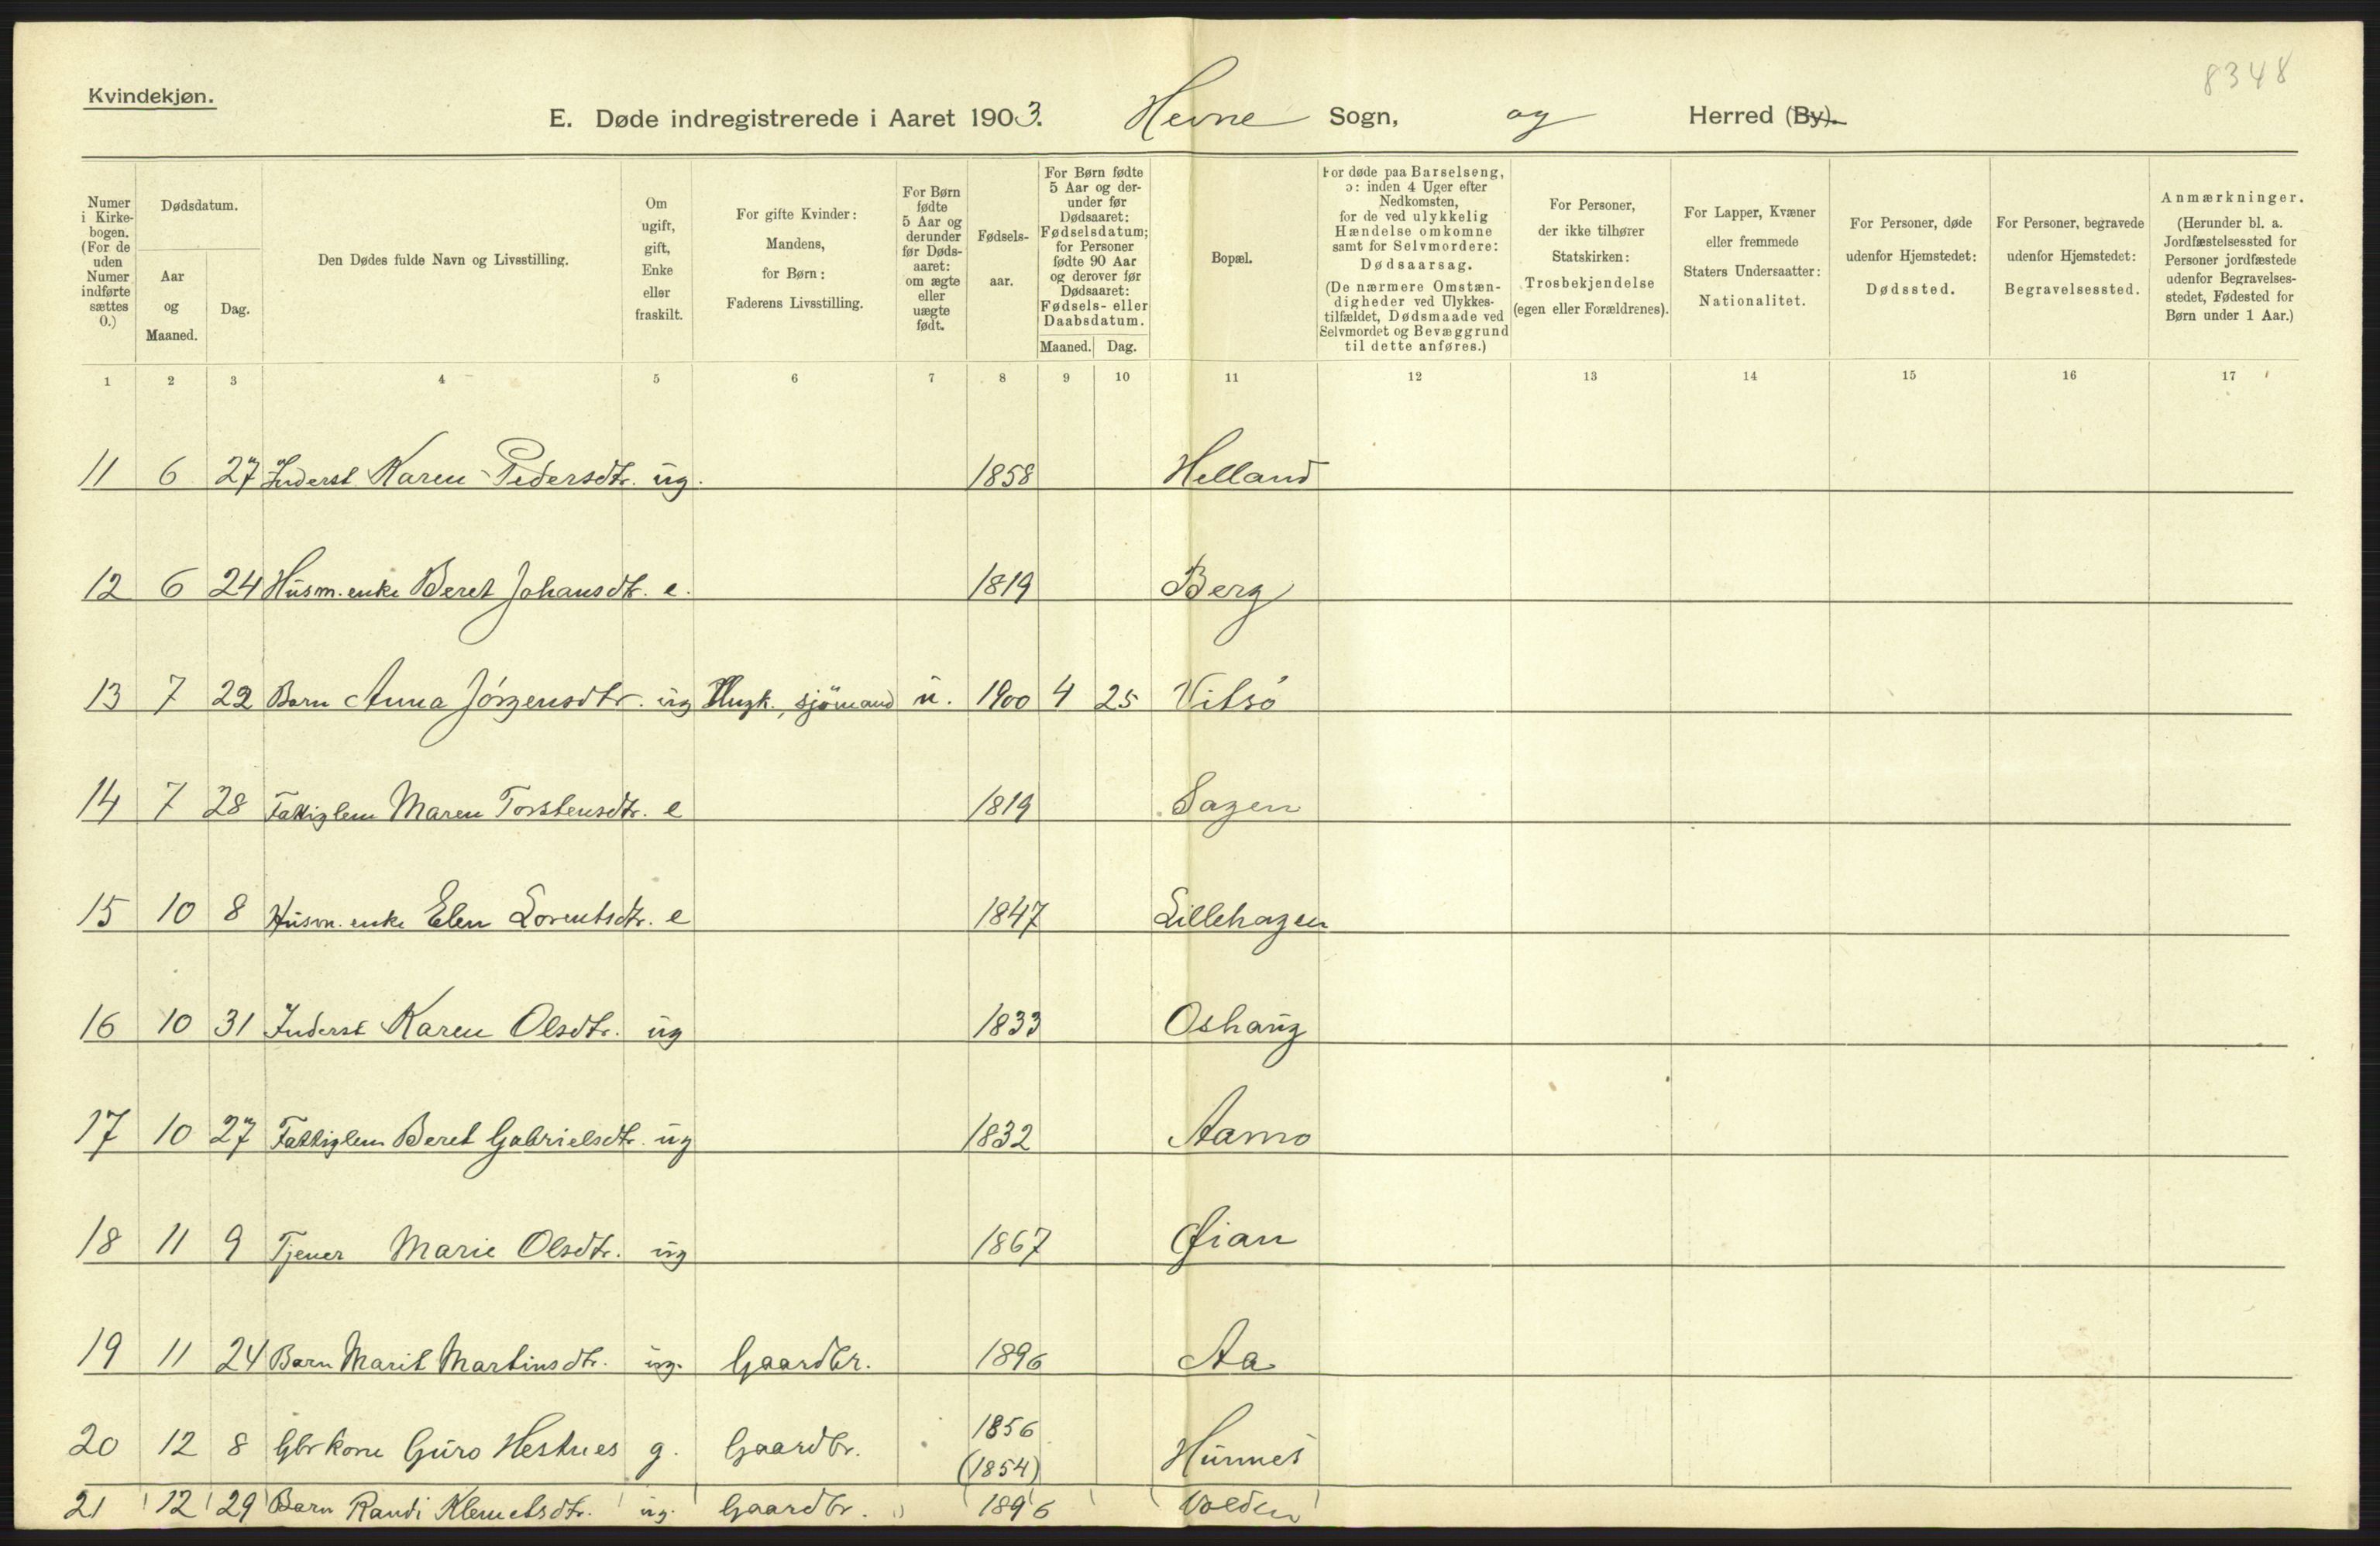 8348
Kvindekjøn.
E. Døde indregistrerede i Aaret 1903. Hevne Sogn, og Herred (By).
Numer i Kirkebogen. (For de uden Numer indførte sættes 0.)
Dødsdatum.
Aar og Maaned.
Dag.
Den Dødes fulde Navn og Livsstilling.
Om ugift, gift, Enke eller fraskilt.
For gifte Kvinder: Mandens, for Børn: Faderens Livsstilling.
For Børn fødte 5 Aar og derunder før Dødsaaret: om ægte eller uægte født.
Fødselsaar.
For Børn fødte 5 Aar og derunder før Dødsaaret: Fødselsdatum; for Personer fødte 90 Aar og derover før Dødsaaret: Fødsels- eller Daabsdatum.
Maaned. Dag.
Bopæl.
For døde paa Barselseng, ɔ: inden 4 Uger efter Nedkomsten, for de ved ulykkelig Hændelse omkomne samt for Selvmordere: Dødsaarsag. (De nærmere Omstændigheder ved Ulykkestilfældet, Dødsmaade ved Selvmordet og Bevæggrund til dette anføres.)
For Personer, der ikke tilhører Statskirken: Trosbekjendelse (egen eller Forældrenes).
For Lapper, Kvæner eller fremmede Staters Undersaatter: Nationalitet.
For Personer, døde udenfor Hjemstedet: Dødssted.
For Personer, begravede udenfor Hjemstedet: Begravelsessted.
Anmærkninger. (Herunder bl. a. Jordfæstelsessted for Personer jordfæstede udenfor Begravelsesstedet, Fødested for Børn under 1 Aar.)
1 2 3 4 5 6 7 8 9 10 11 12 13 14 15 16 17
11 6 27 Inderst Karen Pedersdtr. ug. 1858 Helland
12 6 24 Husm. enke Beret Johansdtr. e. 1819 Berg
13 7 22 Barn Anna Jörgensdtr. ug Ungk., sjömand u. 1900 4 25 Vitsö
14 7 28 Fattiglem Maren Torstensdtr. e 1819 Sagen
15 10 8 Husm. enke Elen Lorentsdtr. e 1847 Lillehagen
16 10 31 Inderst Karen Olsdtr. ug 1833 Oshaug
17 10 27 Fattiglem Beret Gabrielsdtr. ug 1832 Aamo
18 11 9 Tjener Marie Olsdtr. ug 1867 Øian
19 11 24 Barn Marit Martinsdtr. ug. Gaardbr. 1896 Aa
20 12 8 Gbrkone Guro Hestnes g. Gaardbr. 1856 (1854) Hunnes
21 12 29 Barn Randi Klemetsdtr. ug. Gaardbr. 1896 Volden